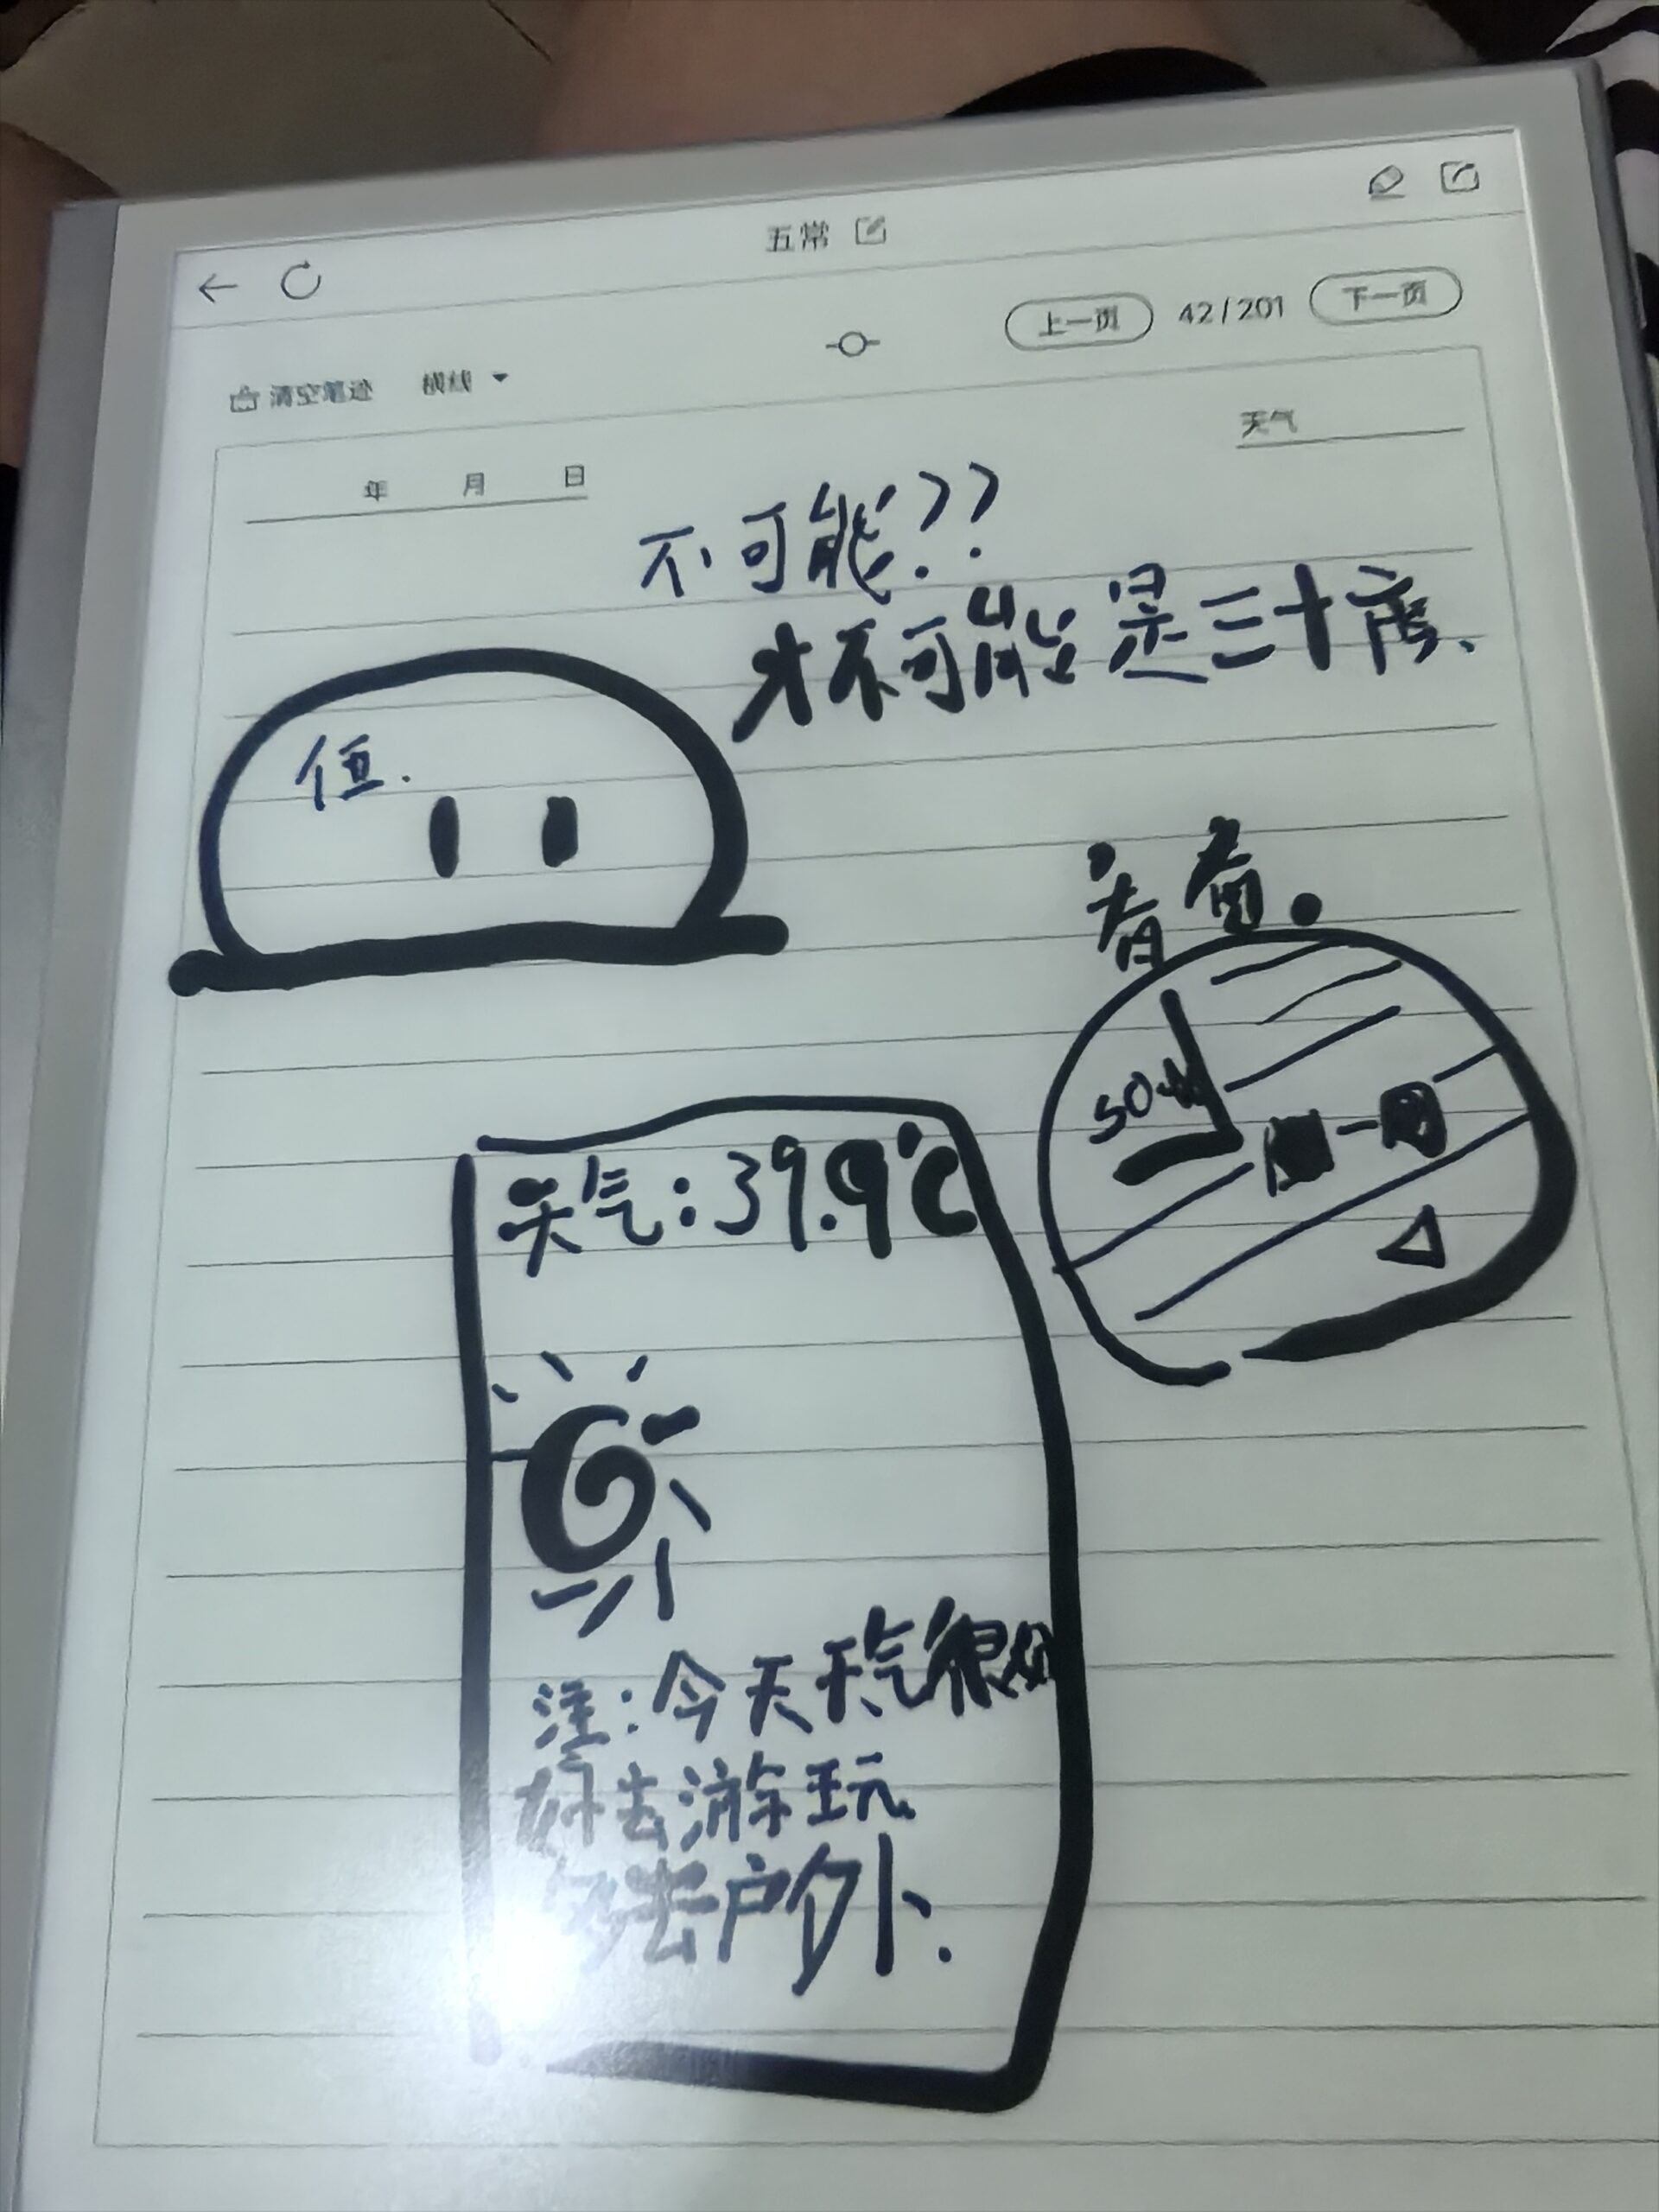 五常
上一页 42/201 下一页
清空笔迹 横线
年 月 日
天气
不可能??
才不可能是三十度、
伍.
看看。
天气:39.9℃
注:今天天气很
好去游玩
多去户外.